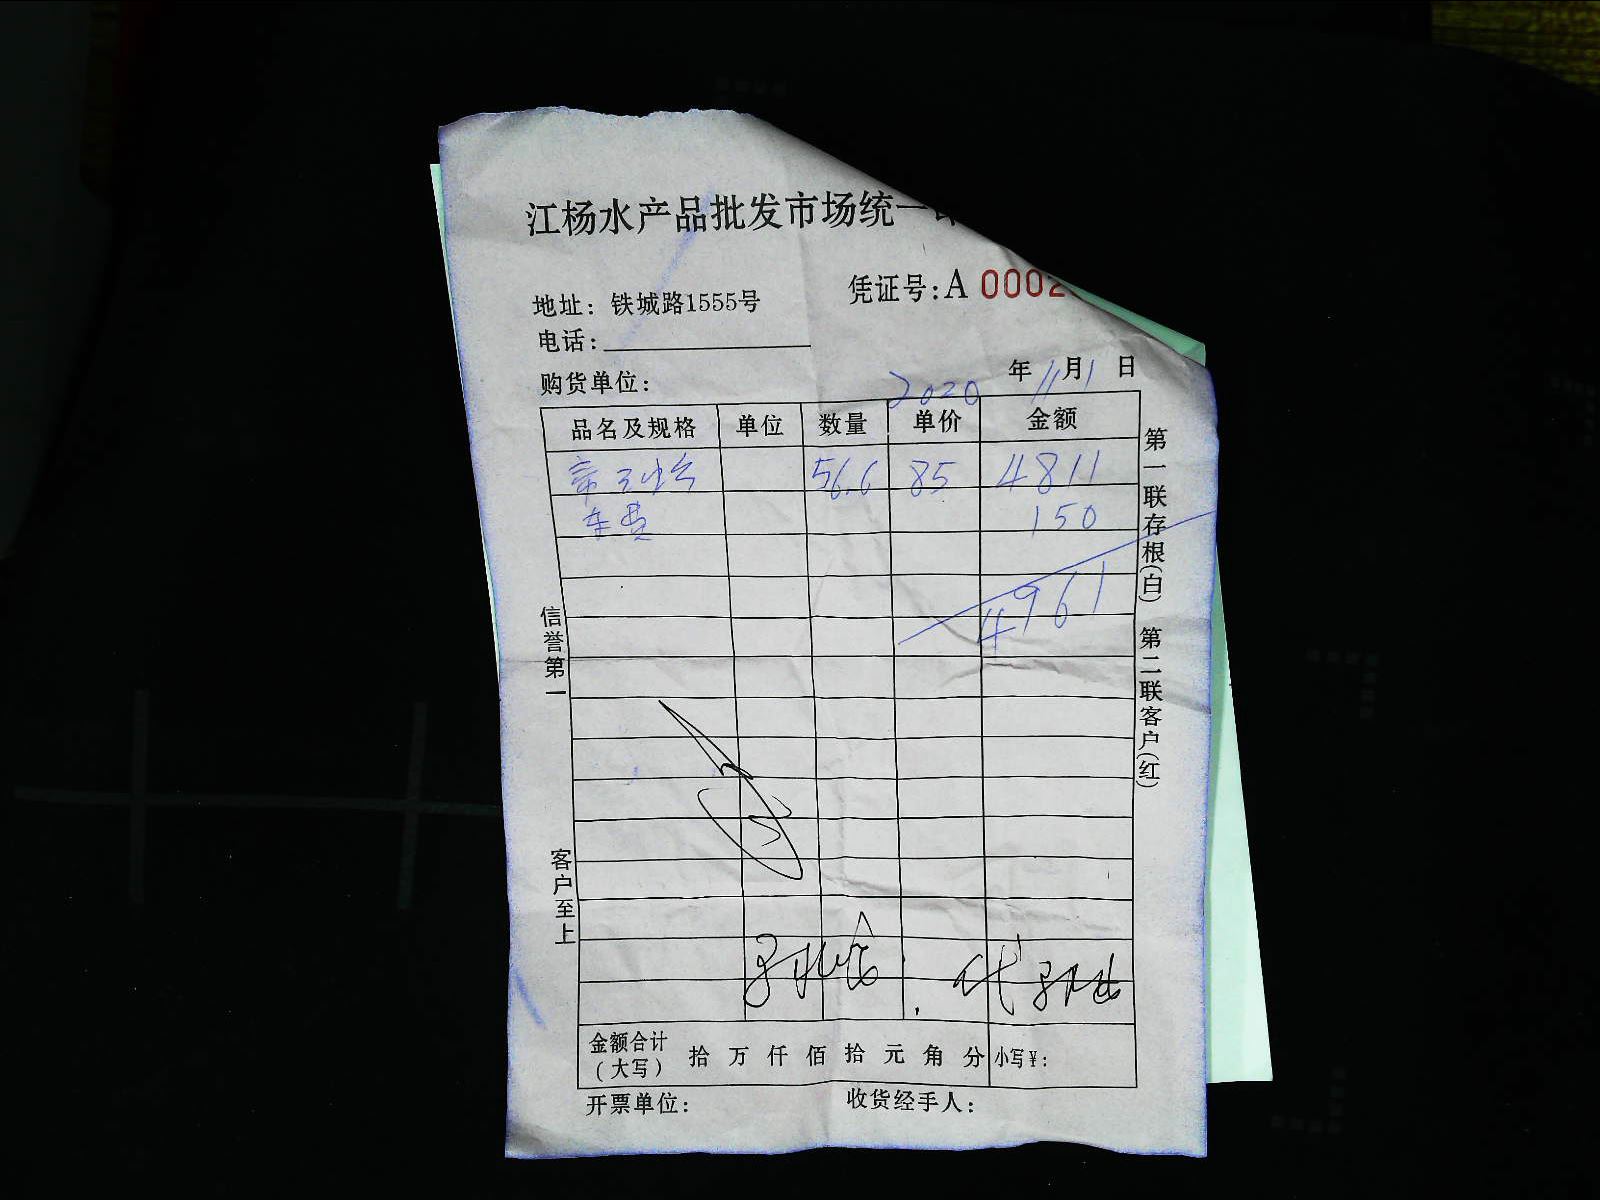 江杨水产品批发市场统一
地址：铁城路1555号
凭证号：A 0002
电话：
购货单位：
2020年11月1日
品名及规格 单位 数量 单价 金额
56.6 85 4811
车费 150
4961
信誉第一
客户至上
第一联存根(白) 第二联客户(红)
金额合计（大写） 拾 万 仟 佰 拾 元 角 分 小写￥：
开票单位： 收货经手人：